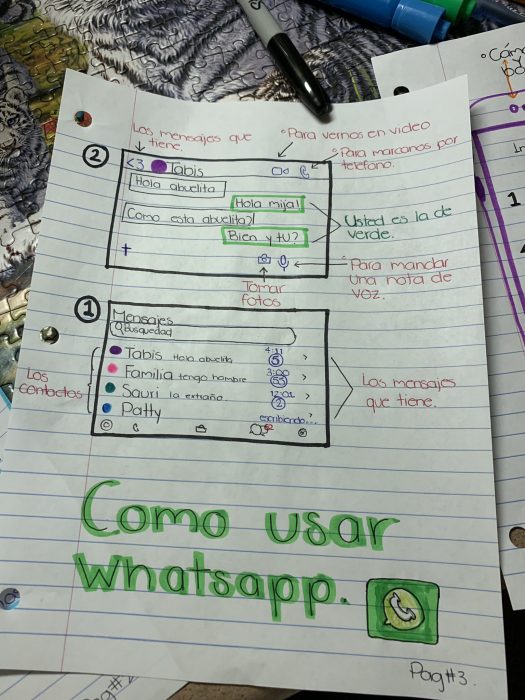 Los mensajes que
tiene.
°Para vernos en video
°Para marcarnos por
telefono.
②
<3 Tabis
Hola abuelita
Hola mija!
Como esta abuelita?
Bien y tu?
Usted es la de
verde.
+
Tomar
fotos
°Para mandar
una nota de
voz.
①
Mensajes
busquedad
Tabis Hola abuelita
4:11
5
Familia tengo hambre
3:00
55
Sauri la extraño.
12:02
2
Patty
escribiendo...
Los
contactos
Los mensajes
que tiene.
Como usar
whatsapp.
Pag#3.
Pag#
°Cóm
1